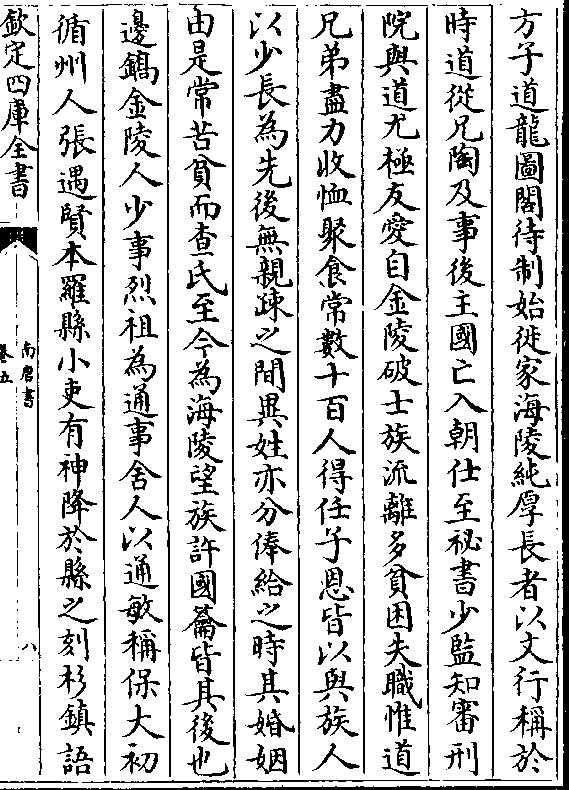 方子道龍圖閣待制始徙家海陵純厚長者以文行稱於
時道從兄陶及事後主國亡入朝仕至祕書少監知審刑
院與道尤極友愛自金陵破士族流離多貧困失職惟道
兄弟盡力收恤聚食常數十百人得任子恩皆以與族人
以少長為先後無親疎之間異姓亦分俸給之時其婚姻
由是常苦貧而查氏至今為海陵望族許國龠皆其後也
邊鎬金陵人少事烈祖為通事舍人以通敏稱保大初
循州人張遇賢本羅縣小吏有神降於縣之刻杉鎮語
欽定四庫全書
南唐書
卷五
八